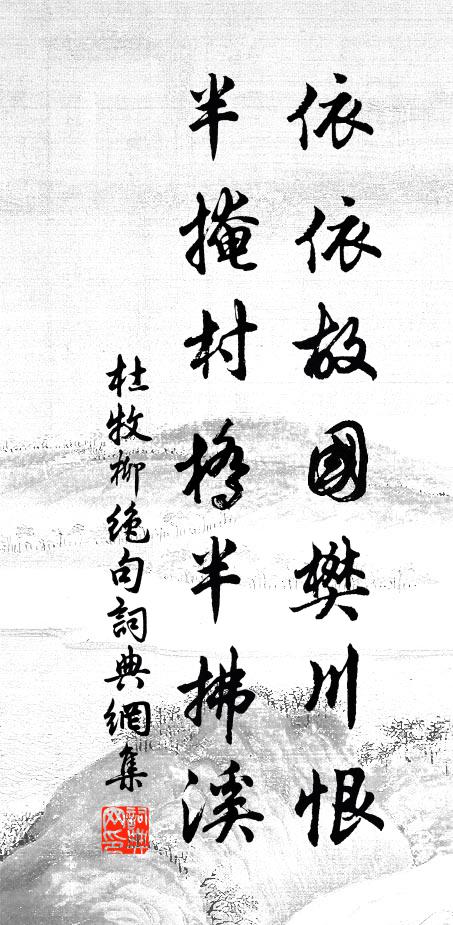 依依故國樊川恨
半掩村橋半拂溪
杜牧柳絶句詞典網集